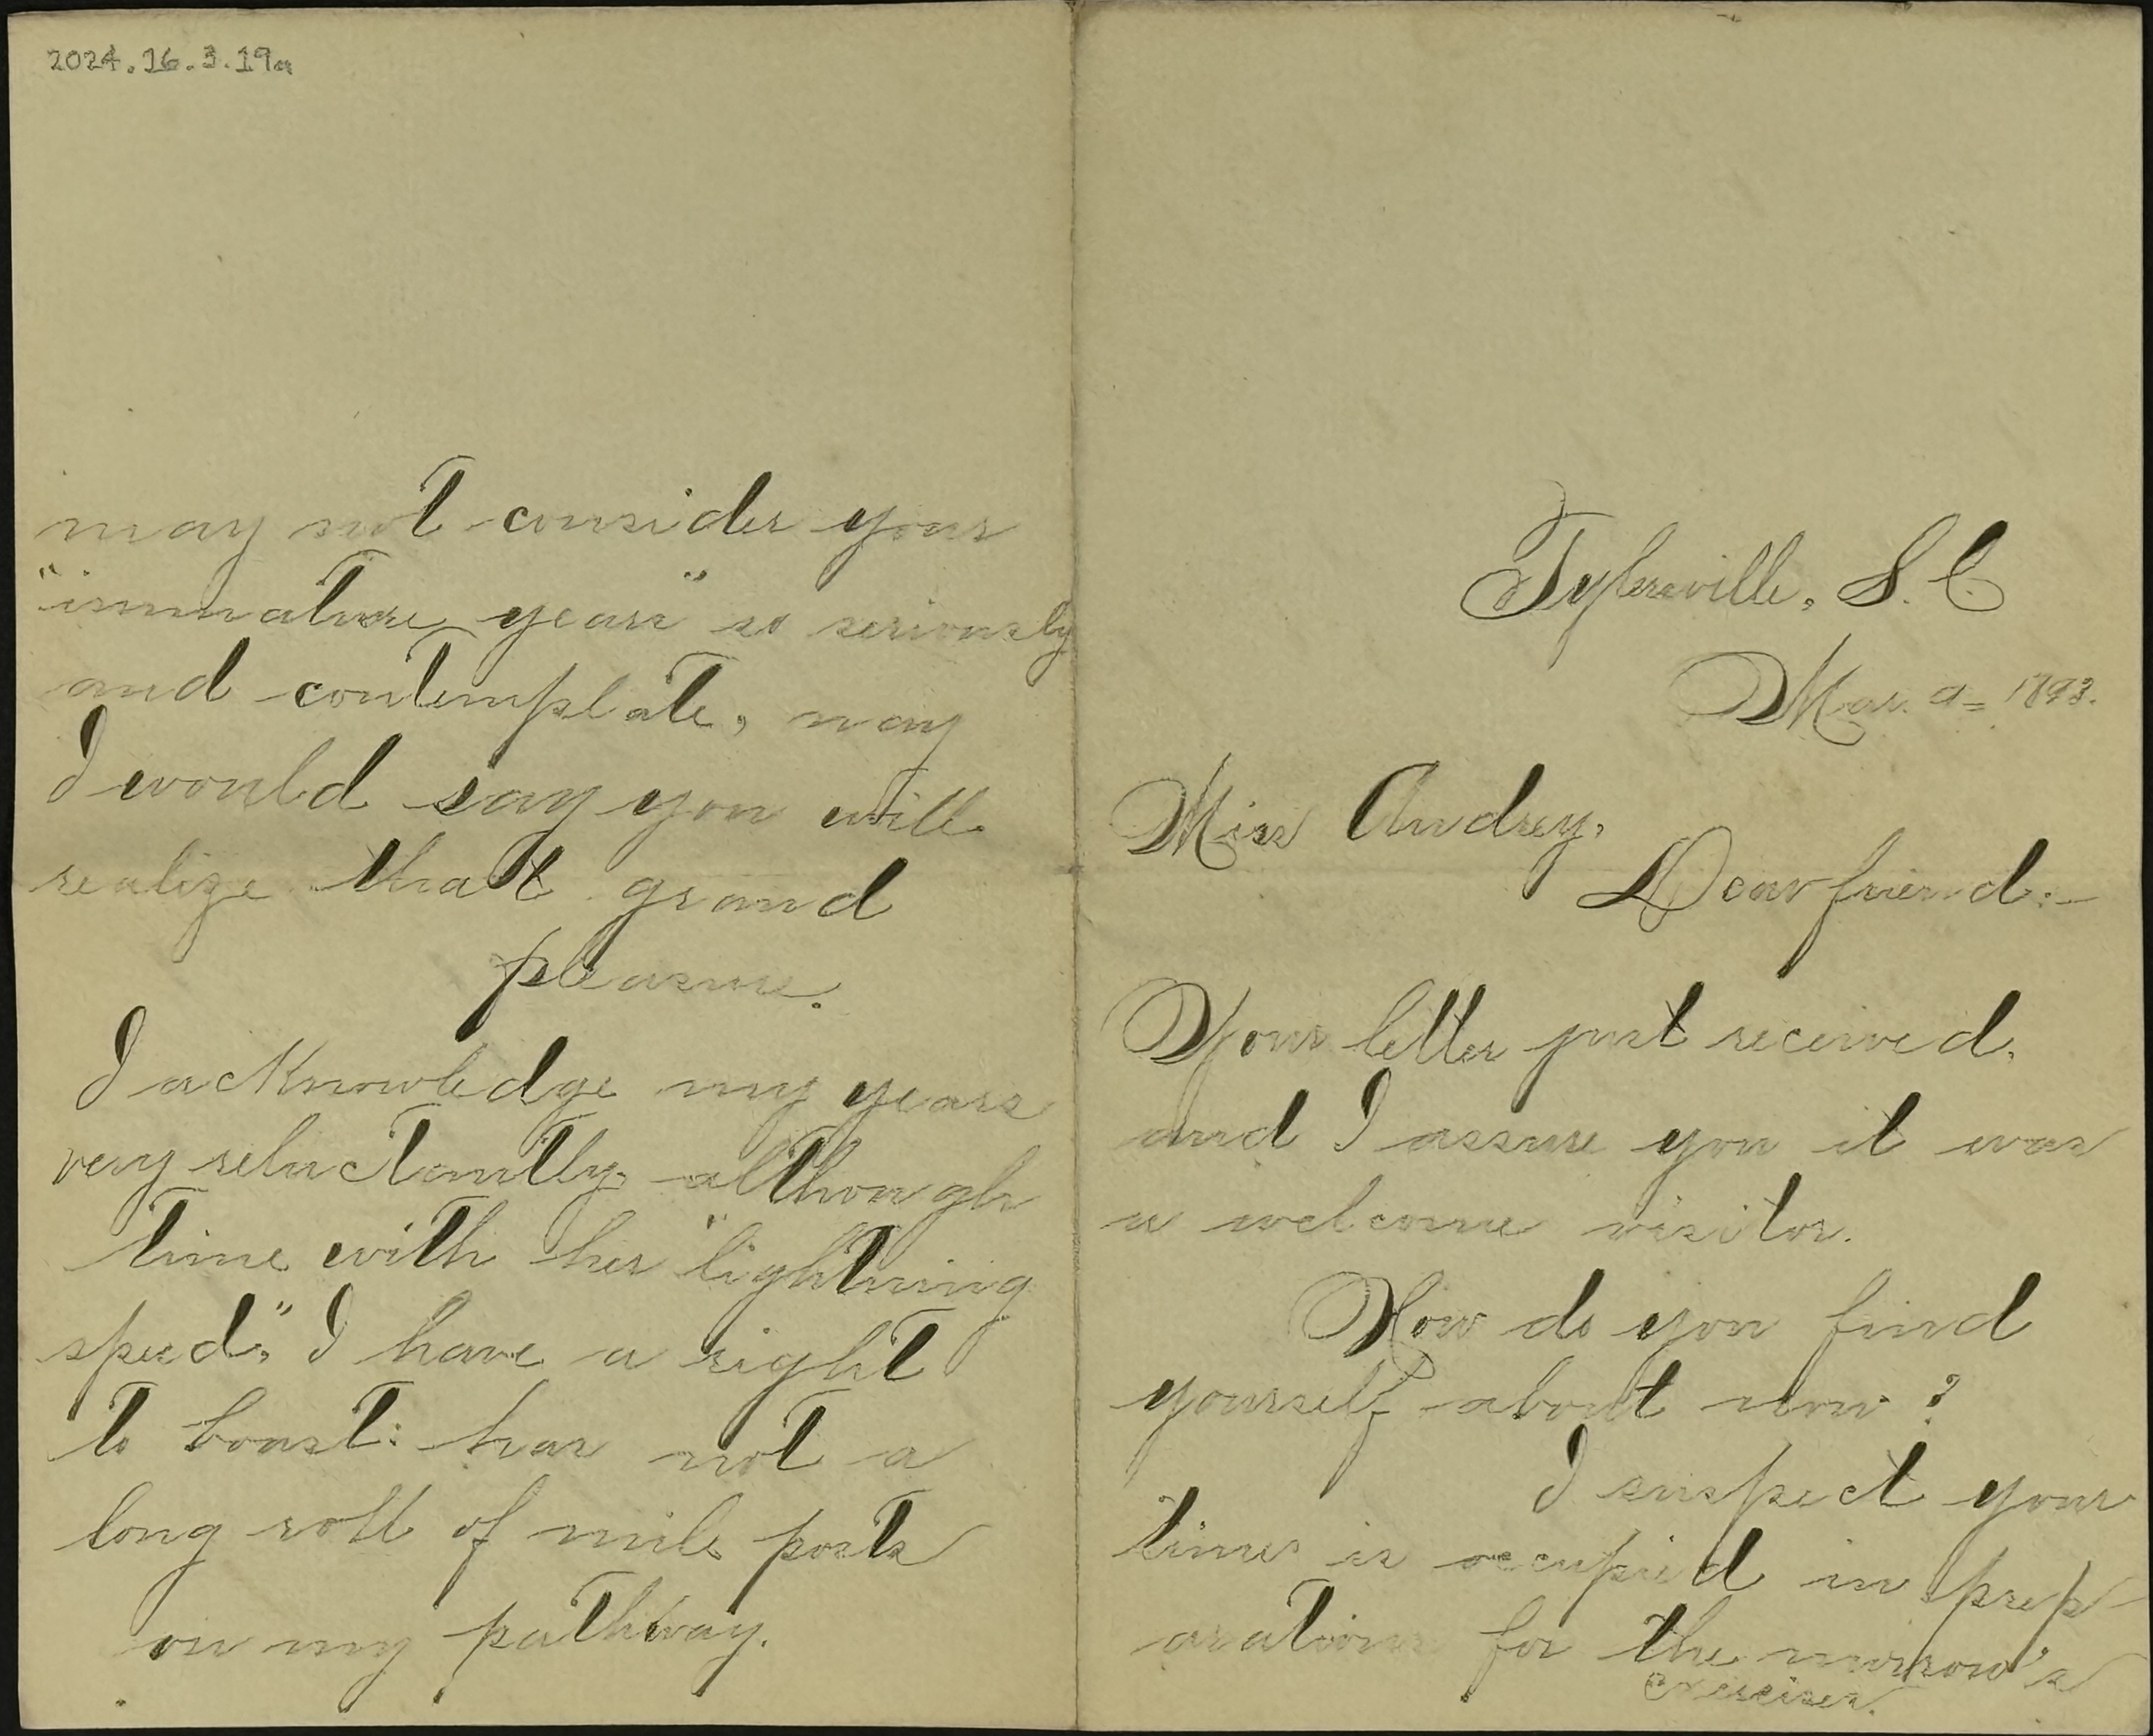 2024.16.3.19a
may not consider your
"immature years" so seriously
and contemplate, may
I would say you will
realize that grand
pleasure.
I acknowledge my years
very reluctantly, although
time with her "lightning
speed," I have a right
to boast: has not a
long roll of mile posts
on my pathway.
Tylersville, S.C
Mar. 9= 1893.
Miss Audrey,
Dear friend:—
Your letter just received,
and I assure you it was
a welcome visitor.
How do you find
yourself about now?
I suspect your
time is occupied in prep-
arations for the morrow's
exercises.